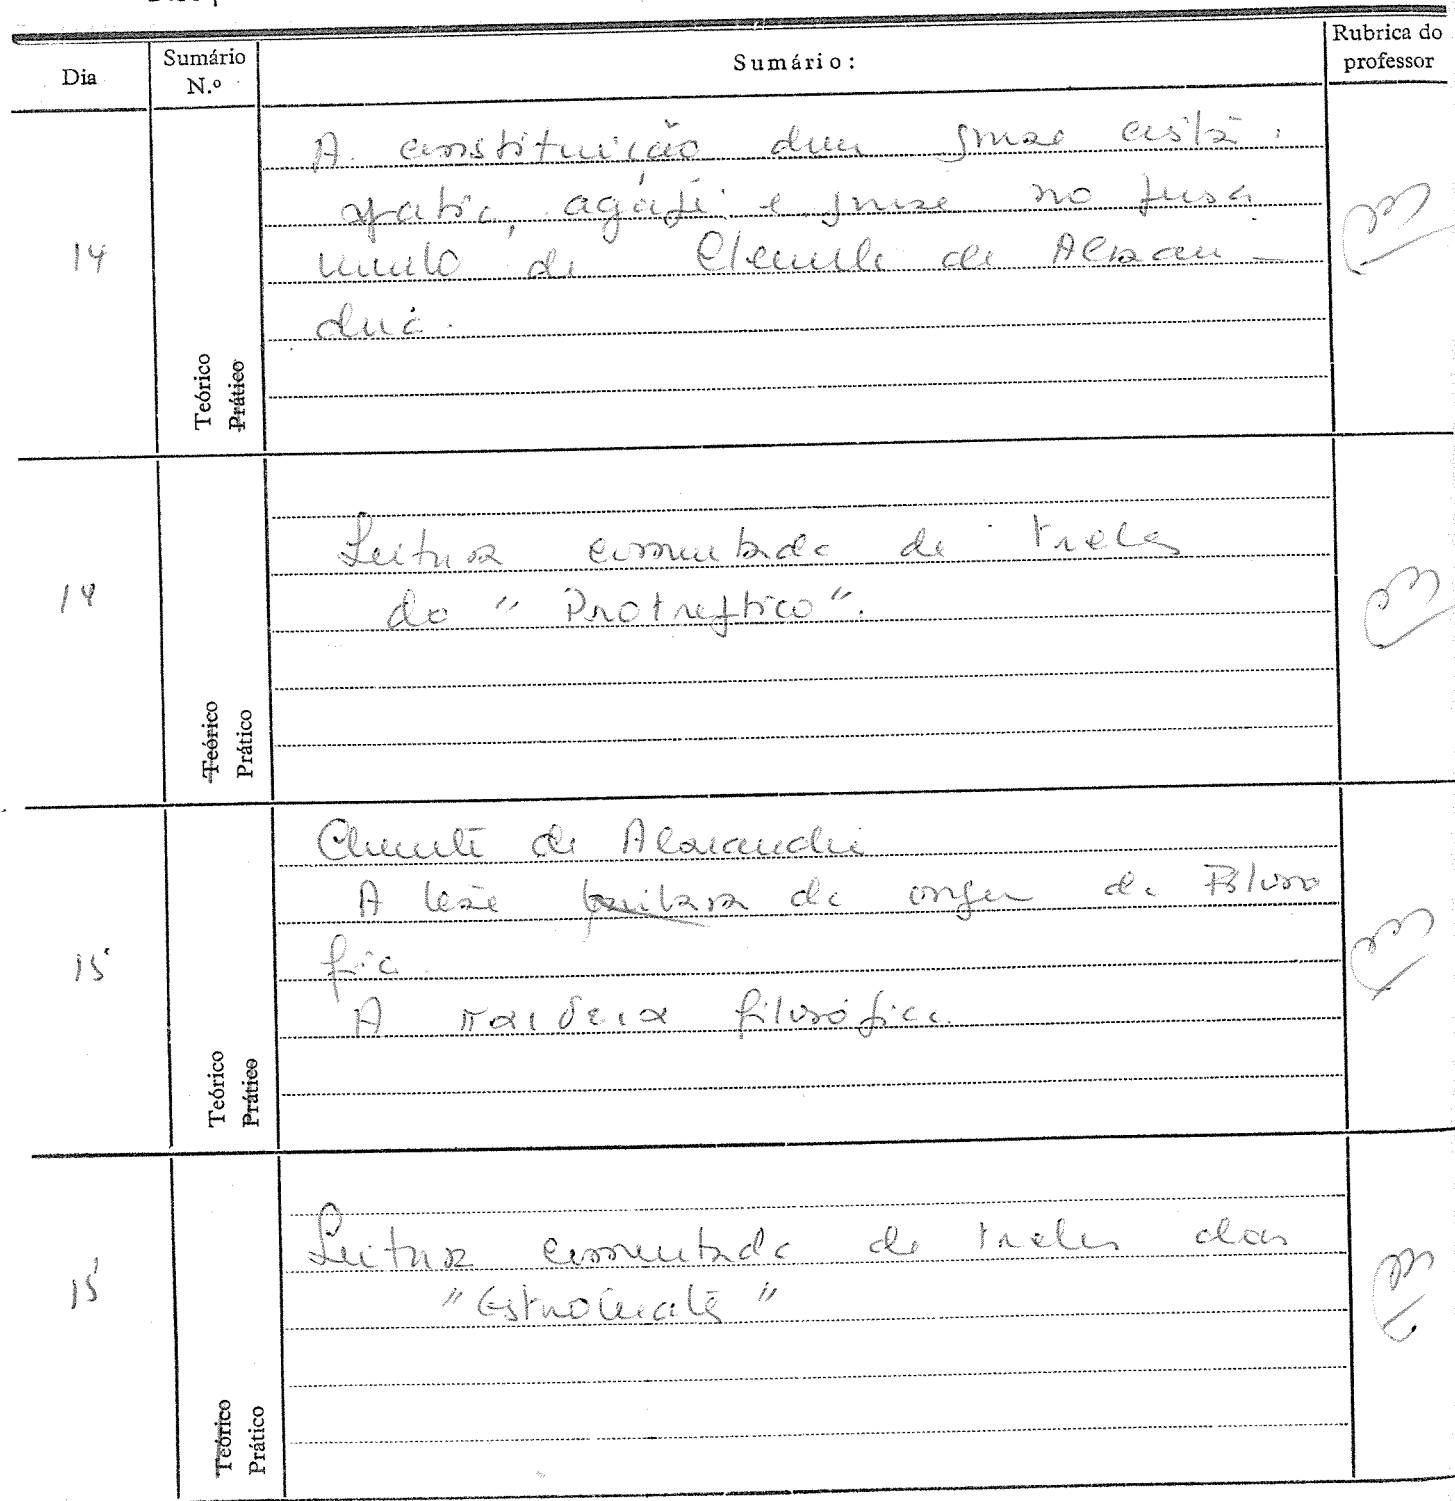 Dia
Sumário
N.º
Sumário:
Rubrica do
professor
14
Teórico
Prático
A constituição duma gnose cristã.
apatia, agápê e gnose no pensa
mento de Clemente de Alexan -
dria.
14
Teórico
Prático
Leitura comentada de textos
do "Protreptico".
15
Teórico
Prático
Clemente de Alexandria
A tese da origem da Filoso
fia
A παιδεια filosófica.
15
Teórico
Prático
Leitura comentada de textos dos
"Estromates"